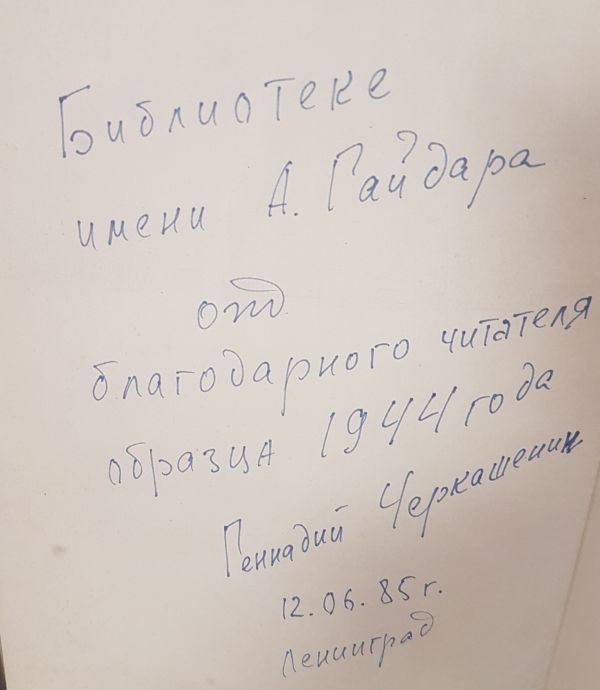 Библиотеке
имени А. Гайдара
от
благодарного читателя
образца 1944 года
Геннадий Черкашенин
12.06.85г.
Ленинград